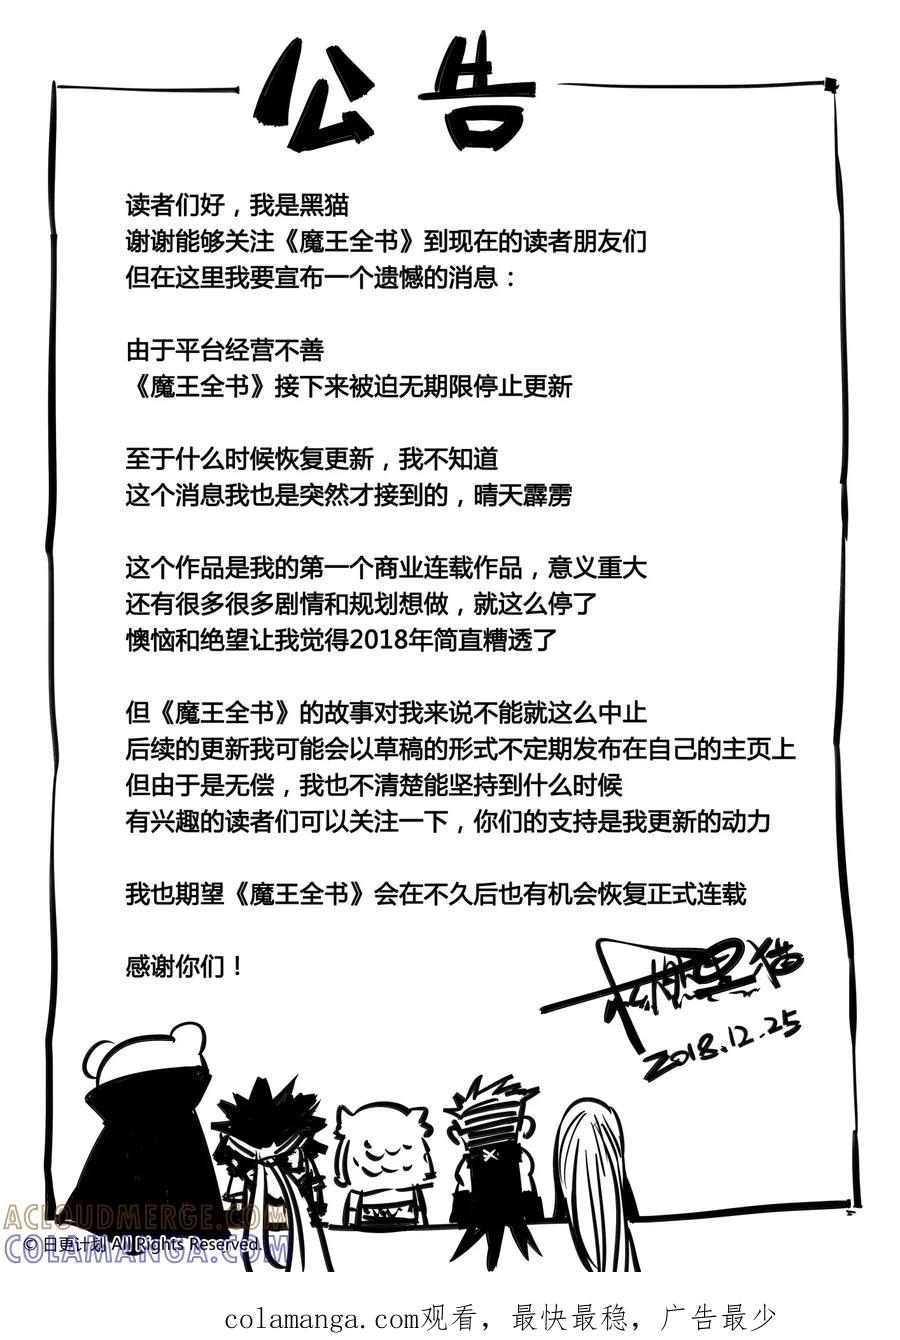 公告
读者们好，我是黑猫
谢谢能够关注《魔王全书》到现在的读者朋友们
但在这里我要宣布一个遗憾的消息：
由于平台经营不善
《魔王全书》接下来被迫无期限停止更新
至于什么时候恢复更新，我不知道
这个消息我也是突然才接到的，晴天霹雳
这个作品是我的第一个商业连载作品，意义重大
还有很多很多剧情和规划想做，就这么停了
懊恼和绝望让我觉得2018年简直糟透了
但《魔王全书》的故事对我来说不能就这么中止
后续的更新我可能会以草稿的形式不定期发布在自己的主页上
但由于是无偿，我也不清楚能坚持到什么时候
有兴趣的读者们可以关注一下，你们的支持是我更新的动力
我也期望《魔王全书》会在不久后也有机会恢复正式连载
感谢你们！
黑猫
2018.12.25
ACLOUDMERGE.COM
© 日更计划 All Rights Reserved.
COLAMANGA.COM
colamanga.com观看，最快最稳，广告最少